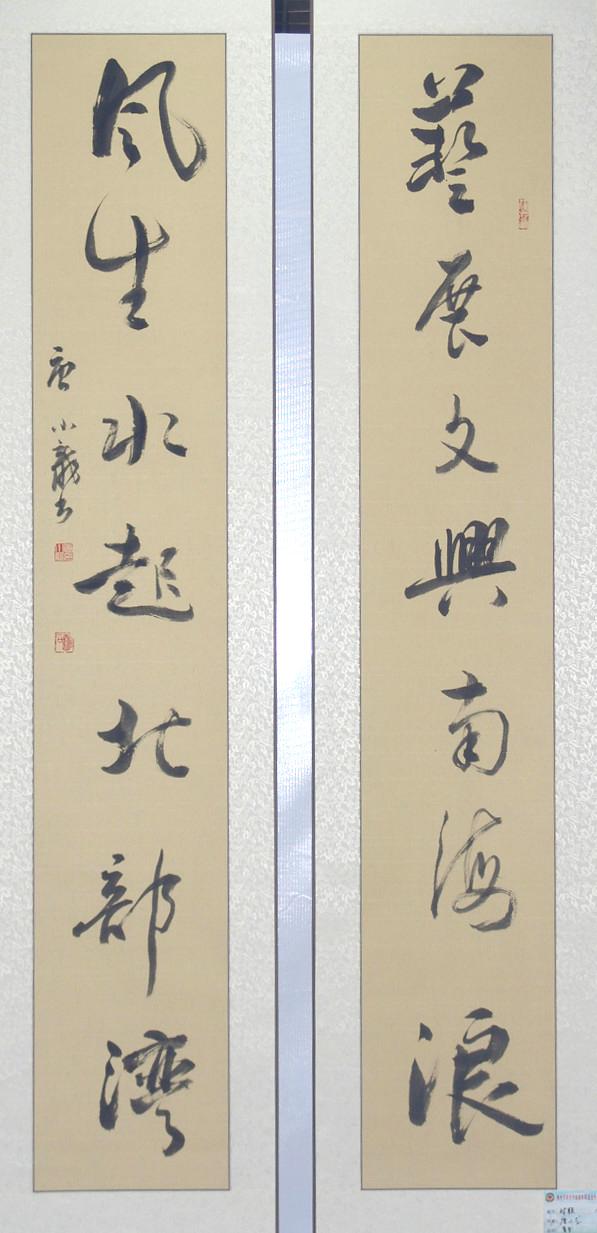 藝展文興南海浪
風生水起北部灣
唐小義書